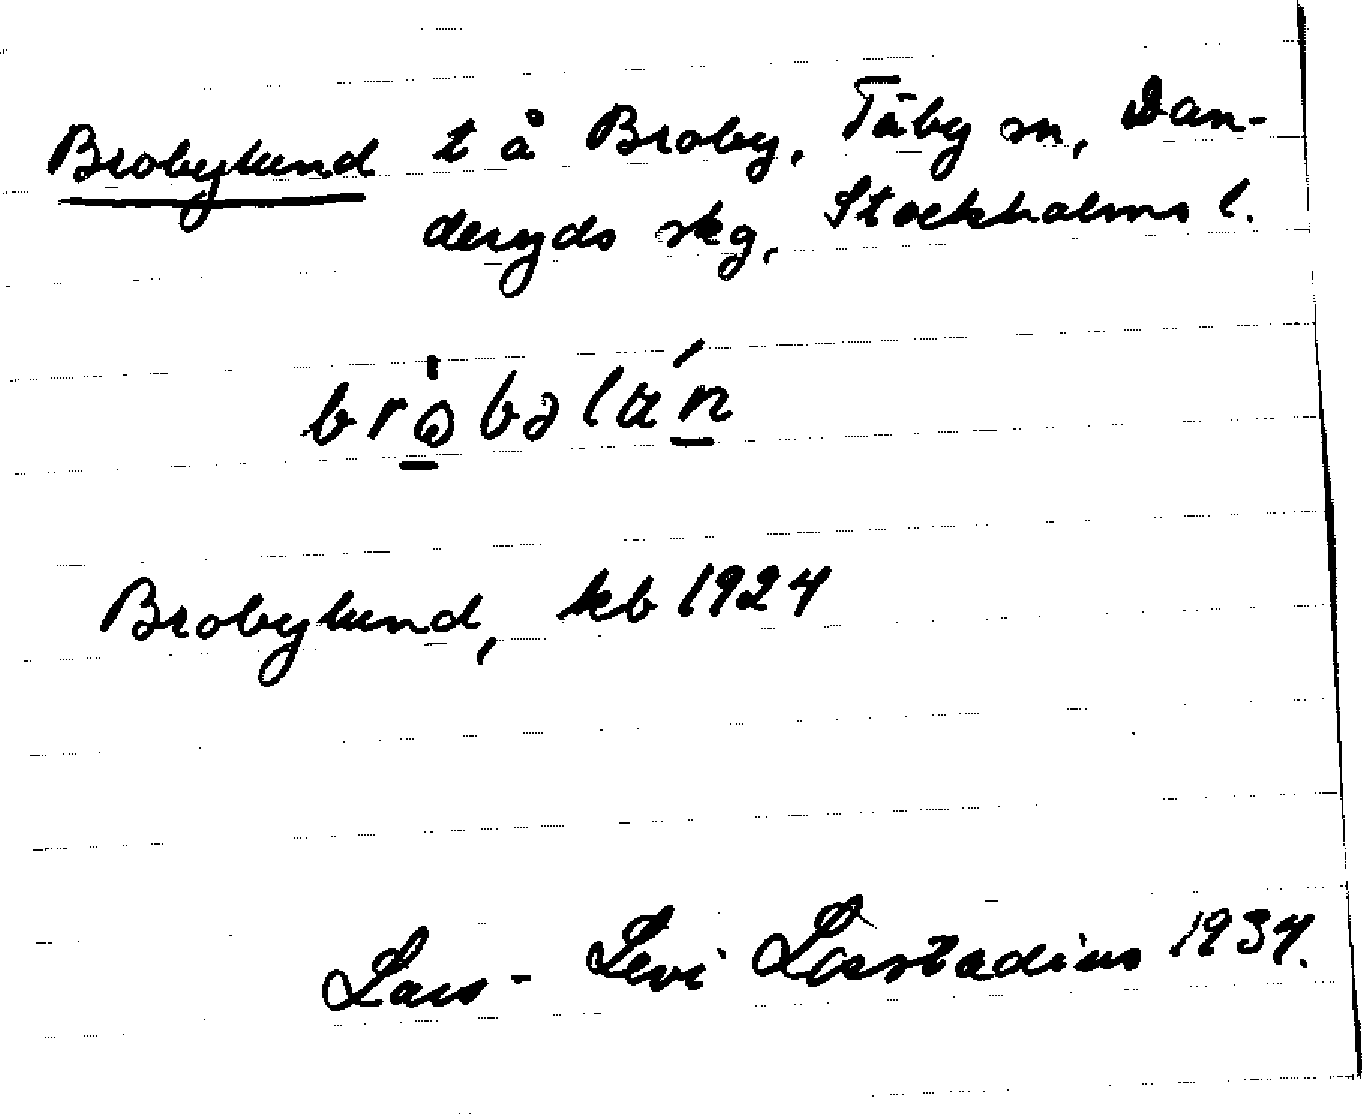 Brobylund t å Broby, Täby sn, Dan-
deryds skg, Stockholms l.
Brobylund, kb 1924
Lars-Levi Læstadius 1934.